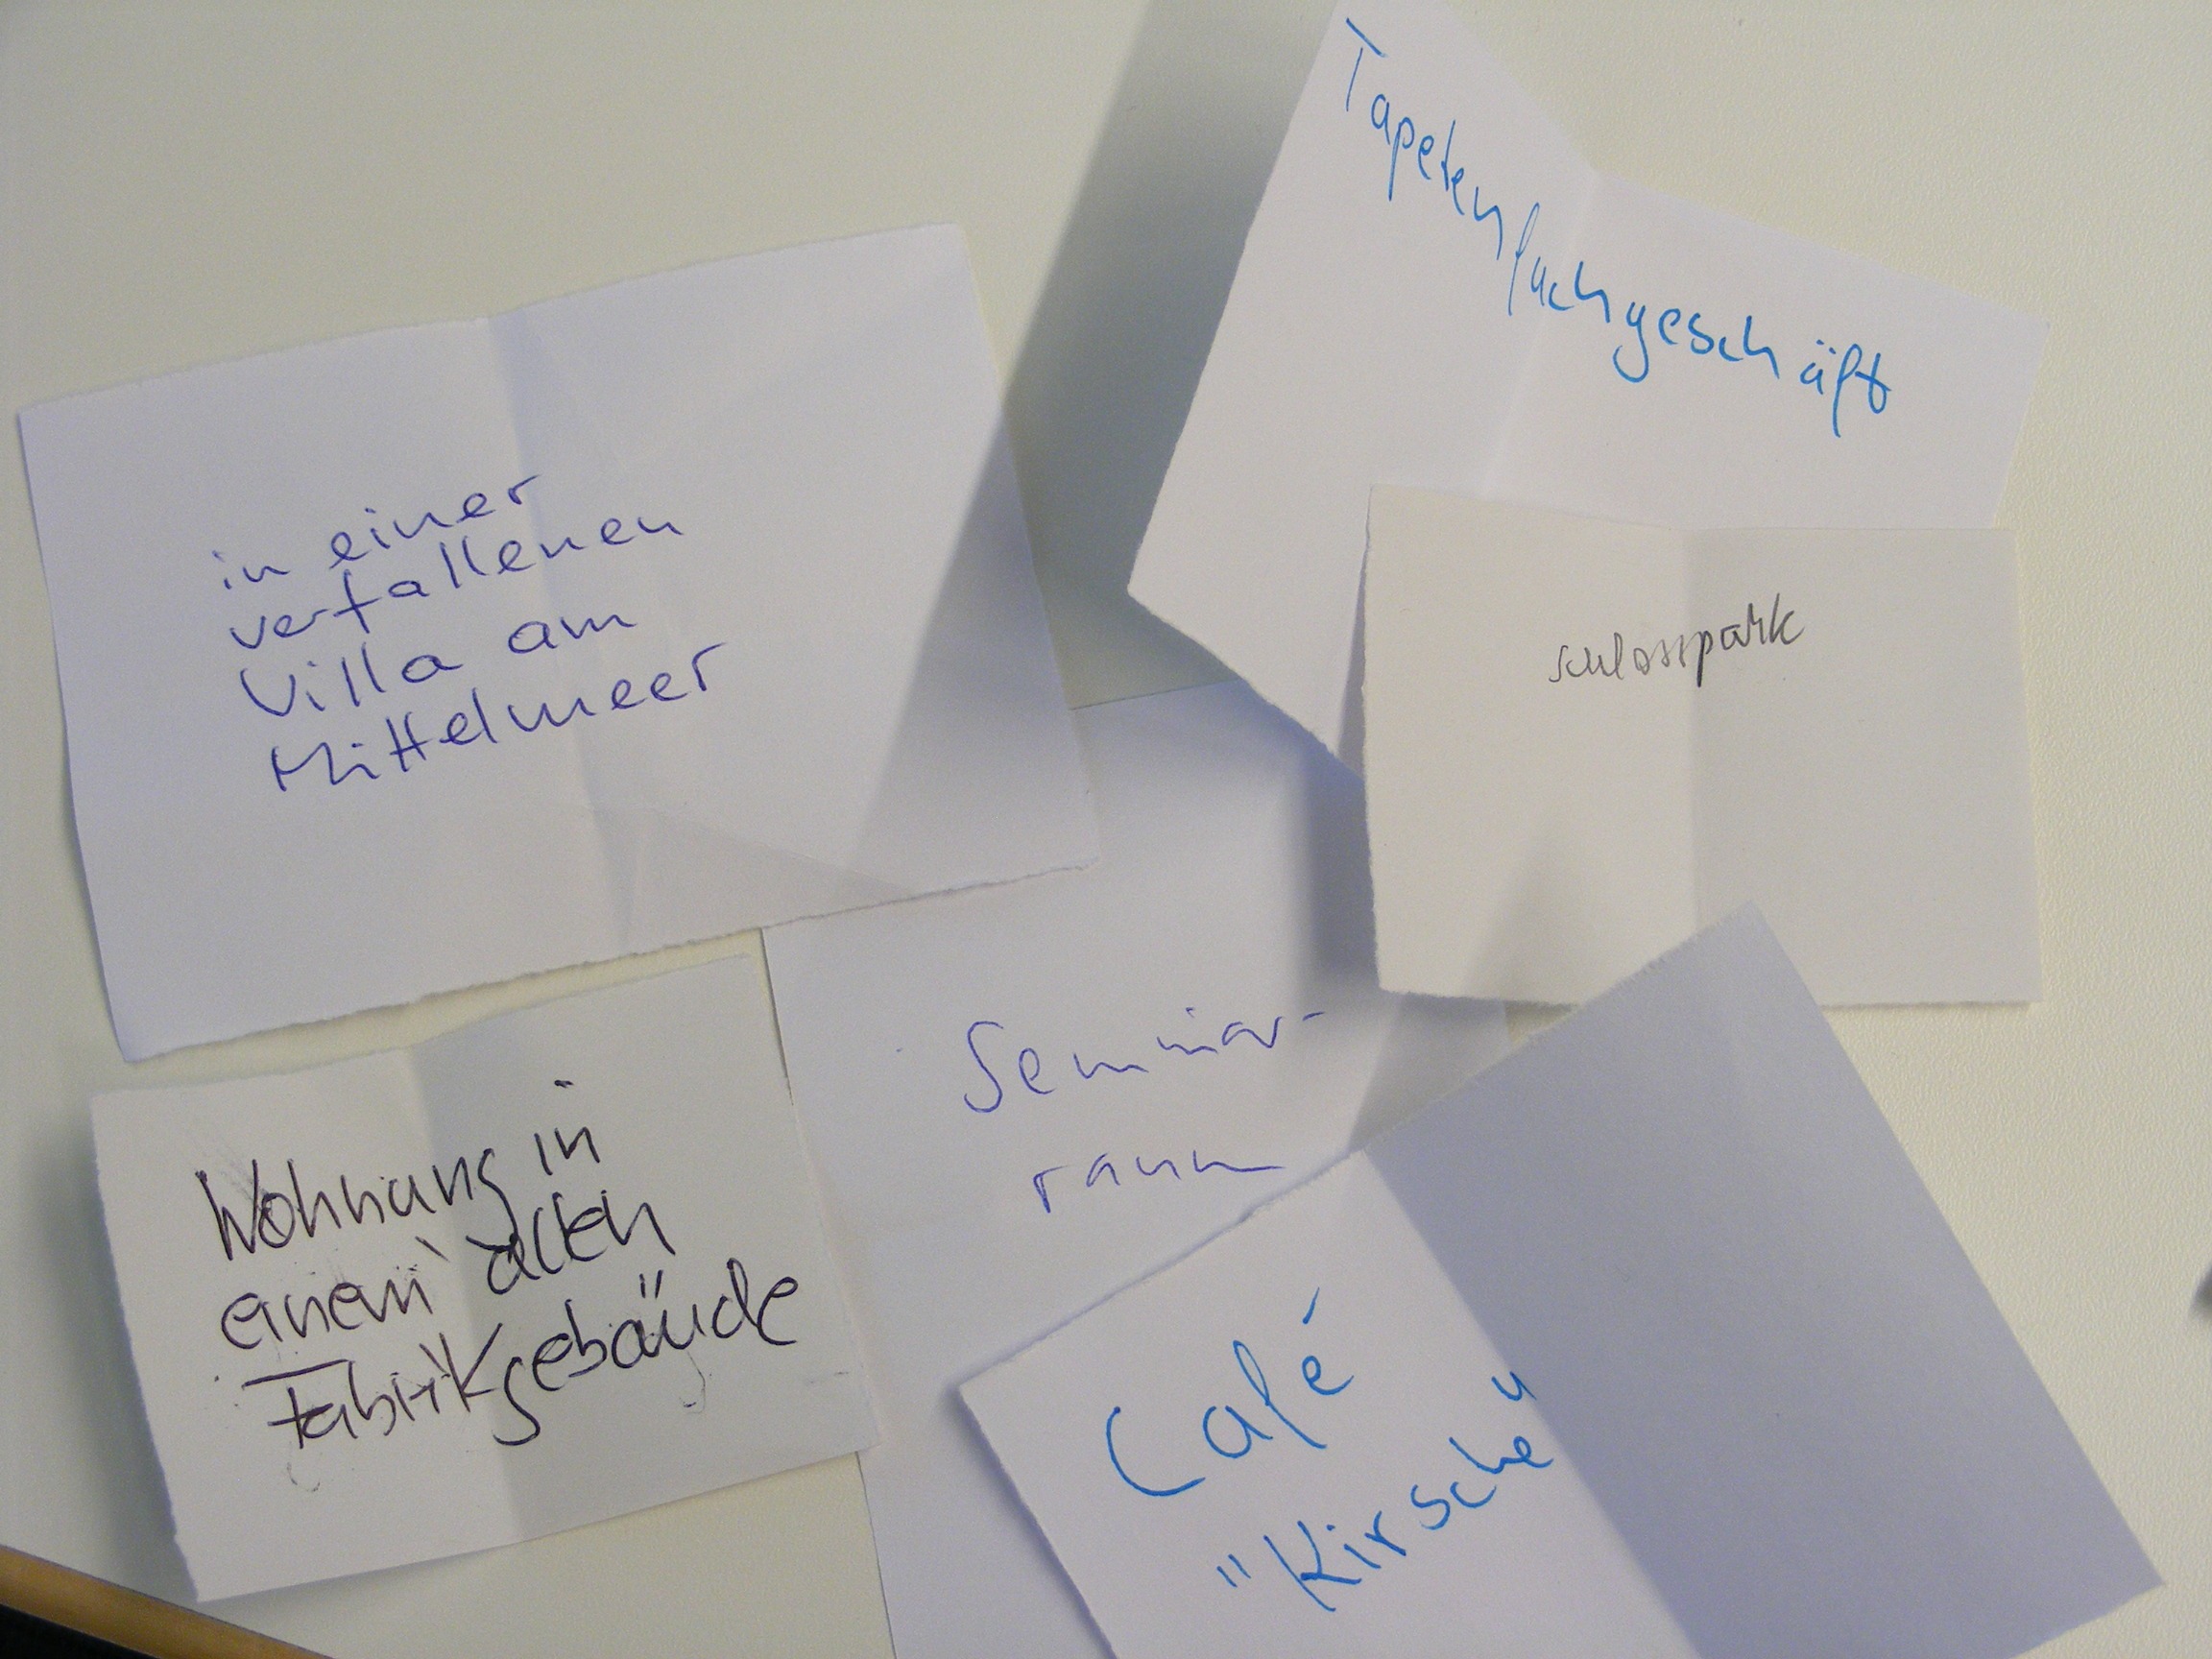 Tapetenfachgeschäft
in einer
verfallenen
Villa am
Mittelmeer
schlosspark
Seminar-
raum
Wohnung in
einem alten
Fabrikgebäude
Café
"Kirsche"